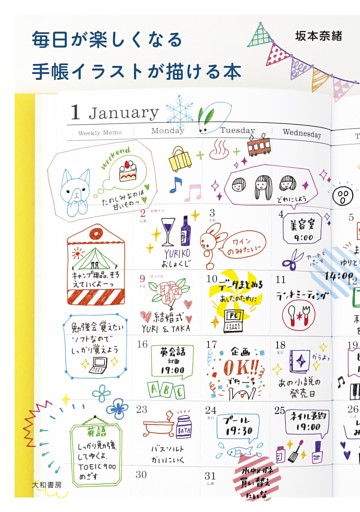 毎日が楽しくなる
手帳イラストが描ける本
坂本奈緒
1 January
Weekly Memo
Monday
Tuesday
Wednesday
T
weekend
たのしみなのは
甘いものっ
どれにしよう
2
YURIKO
おしょくじ
3
ワイン
のみたい~
4
美容室
9:00
14:00
キャンプ用品、そろ
えていくよーっ
9
結婚式
YURI & TAKA
10
データまとめる
あしたのために
11
ランチミーティング
12
勉強会 覚えたい
ソフトなので
しっかり覚えよう
16
英会話
19:00
ABC
17
企画
OK!!
18
あの小説の
発売日
19
英語
しっかり
TOEIC 900
めざす
23
バスソルト
かいにいく
24
プール
19:30
25
ネイル予約
19:00
26
30
31
水中メガネ
買い替え
たいな
大和書房